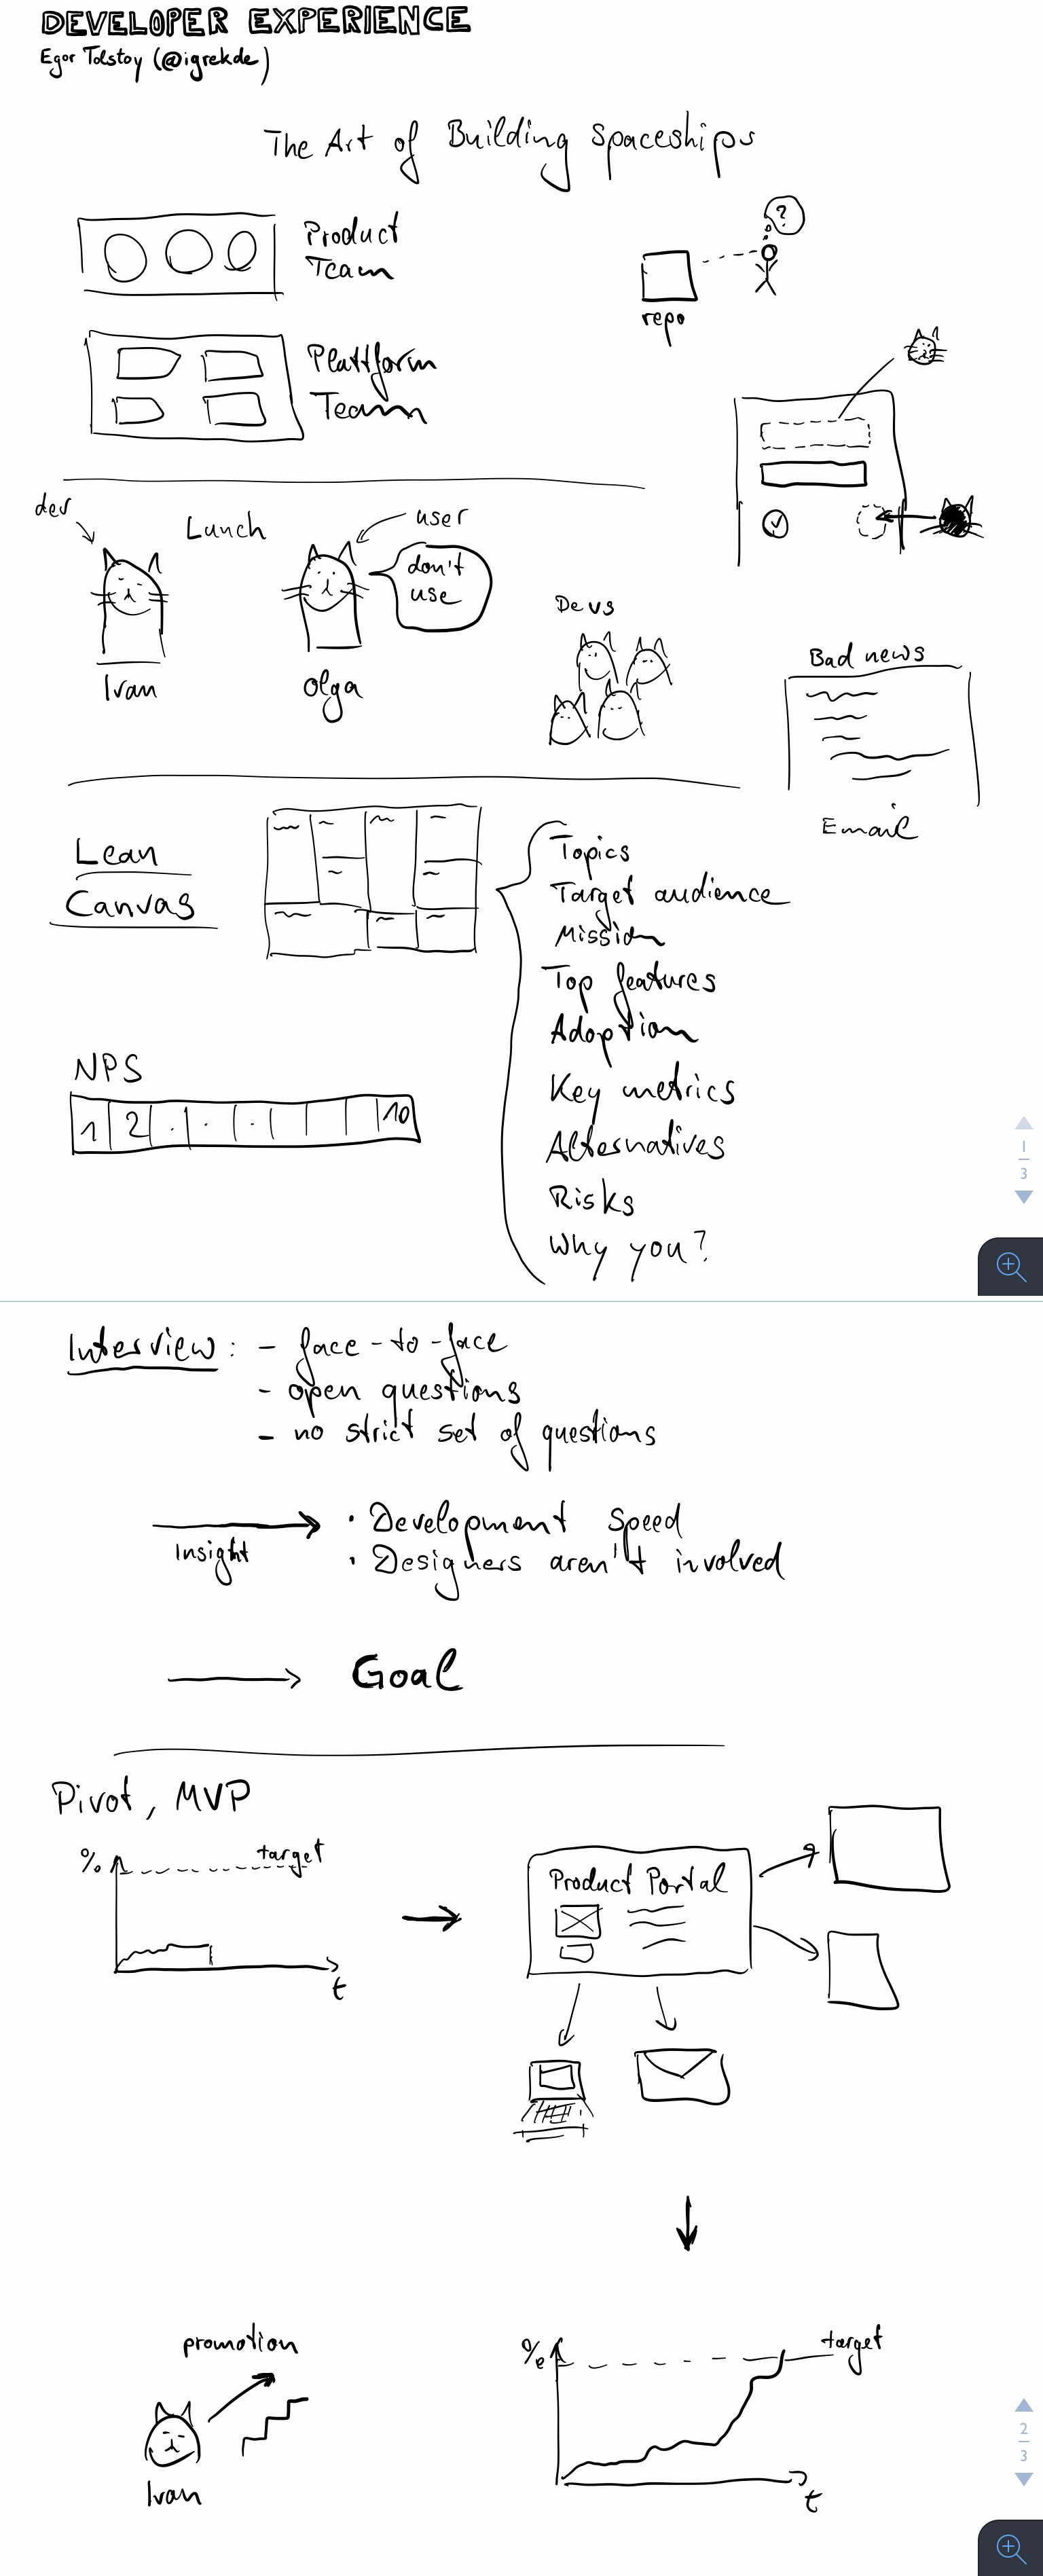 DEVELOPER EXPERIENCE
Egor Tolstoy (@igrekde)
The Art of Building Spaceships
Product
Team
?
repo
Plattform
Team
dev
Lunch
user
don't
use
Ivan
Olga
Devs
Bad news
Email
Lean
Canvas
Topics
Target audience
Mission
Top features
Adoption
Key metrics
Alternatives
Risks
Why you?
NPS
1 2 . . . 10
1
3
Interview: - face-to-face
- open questions
- no strict set of questions
Insight
• Development Speed
• Designers aren't involved
Goal
Pivot, MVP
% target
t
Product Portal
promotion
Ivan
% target
t
2
3